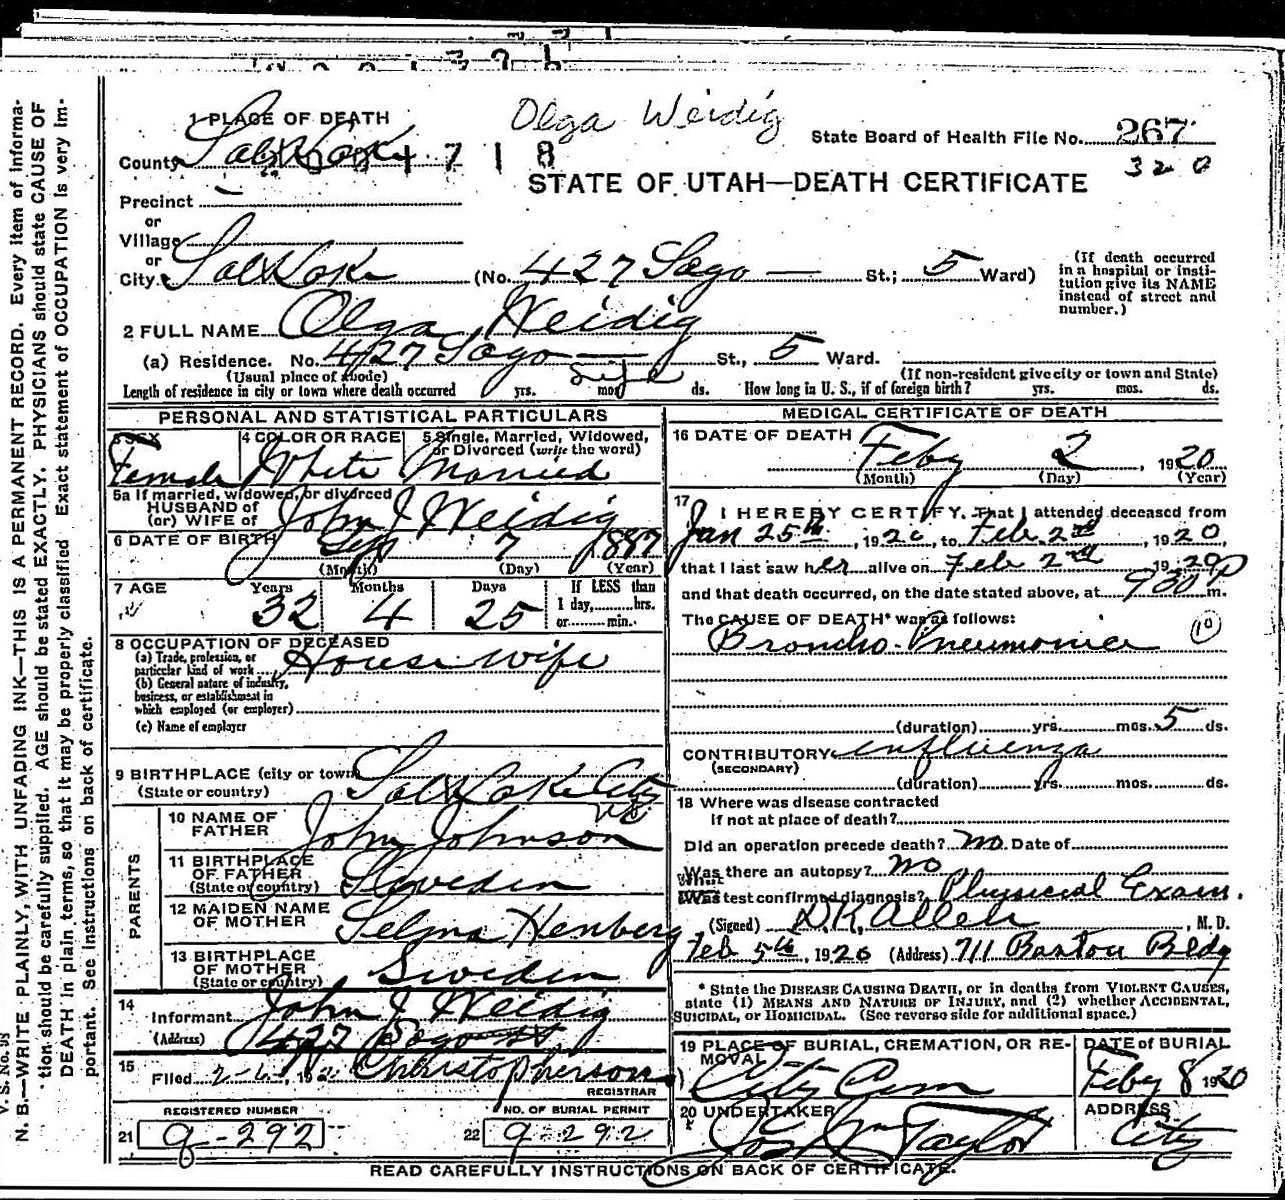 Olga Weidig
1 PLACE OF DEATH
State Board of Health File No. 267
320
County Salt Lake 4 7 1 8
STATE OF UTAH—DEATH CERTIFICATE
Precinct —
or
Village
or
City Salt Lake (No. 427 Sego — St.; 5 Ward)
(If death occurred in a hospital or institution give its NAME instead of street and number.)
2 FULL NAME Olga Weidig
(a) Residence. No. 427 Sego — St., 5 Ward.
(Usual place of abode) (If non-resident give city or town and State)
Length of residence in city or town where death occurred yrs. mos. Life ds. How long in U. S., if of foreign birth? yrs. mos. ds.
PERSONAL AND STATISTICAL PARTICULARS
3 SEX Female
4 COLOR OR RACE White
5 Single, Married, Widowed, or Divorced (write the word) Married
5a If married, widowed, or divorced
HUSBAND of
(or) WIFE of John J Weidig
6 DATE OF BIRTH Sep 7 1887
(Month) (Day) (Year)
7 AGE Years 32 Months 4 Days 25 If LESS than 1 day, hrs. or min.
8 OCCUPATION OF DECEASED
(a) Trade, profession, or particular kind of work House wife
(b) General nature of industry, business, or establishment in which employed (or employer)
(c) Name of employer
9 BIRTHPLACE (city or town) Salt Lake City
(State or country)
PARENTS
10 NAME OF FATHER John Johnson
11 BIRTHPLACE OF FATHER (State or country) Sweden
12 MAIDEN NAME OF MOTHER Selma Henberg
13 BIRTHPLACE OF MOTHER (State or country) Sweden
14 Informant John J Weidig
(Address) 427 Sego St
15 Filed 2-6, 1920 Christopherson
REGISTRAR
REGISTERED NUMBER NO. OF BURIAL PERMIT
21 9-292 22 9-292
MEDICAL CERTIFICATE OF DEATH
16 DATE OF DEATH Feby 2, 1920
(Month) (Day) (Year)
17 I HEREBY CERTIFY, That I attended deceased from
Jan 25th, 1920, to Feb. 2nd, 1920,
that I last saw her alive on Feb 2nd, 1920
and that death occurred, on the date stated above, at 930 P m.
The CAUSE OF DEATH* was as follows:
Broncho-Pneumonia 10
(duration) yrs. mos. 5 ds.
CONTRIBUTORY influenza
(SECONDARY)
(duration) yrs. mos. ds.
18 Where was disease contracted
if not at place of death?
Did an operation precede death? no Date of
Was there an autopsy? no
What test confirmed diagnosis? Physical Exam.
(Signed) D.K. Allen, M. D.
Feb 5th, 1920 (Address) 711 Boston Bldg
* State the DISEASE CAUSING DEATH, or in deaths from VIOLENT CAUSES,
state (1) MEANS AND NATURE OF INJURY, and (2) whether ACCIDENTAL,
SUICIDAL, or HOMICIDAL. (See reverse side for additional space.)
19 PLACE OF BURIAL, CREMATION, OR REMOVAL City Cem
DATE of BURIAL Feby 8 1920
20 UNDERTAKER Jos Wm Taylor
ADDRESS City
READ CAREFULLY INSTRUCTIONS ON BACK OF CERTIFICATE.
V. S. No. 98
N. B.—WRITE PLAINLY, WITH UNFADING INK—THIS IS A PERMANENT RECORD. Every item of informa-
tion should be carefully supplied. AGE should be stated EXACTLY. PHYSICIANS should state CAUSE OF
DEATH in plain terms, so that it may be properly classified. Exact statement of OCCUPATION is very im-
portant. See instructions on back of certificate.